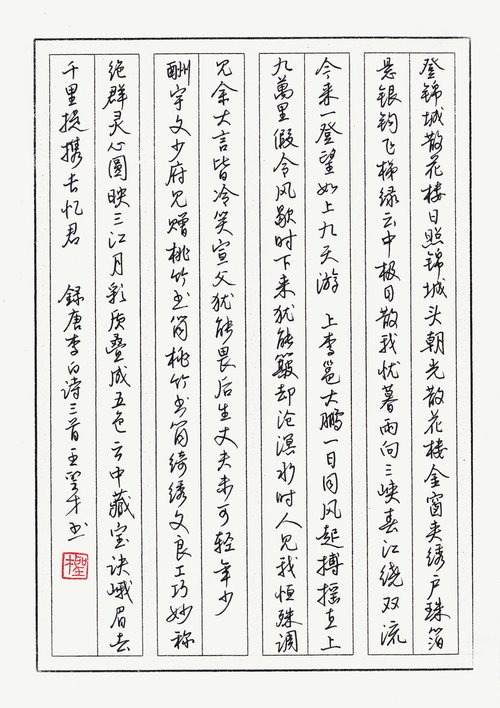 登锦城散花楼日照锦城头朝光散花楼金窗夹绣户珠箔
悬银钩飞梯绿云中极目散我忧暮雨向三峡春江绕双流
今来一登望如上九天游 上李邕大鹏一日同风起搏摇直上
九萬里假令风歇时下来犹能簸却沧溟水时人见我恒殊调
见余大言皆冷笑宣父犹能畏后生丈夫未可轻年少
酬宇文少府见赠桃竹书筒桃竹书筒绮绣文良工巧妙称
绝群灵心圆映三江月彩质叠成五色云中藏宝诀峨眉去
千里提携长忆君 録唐李白诗三首王才书